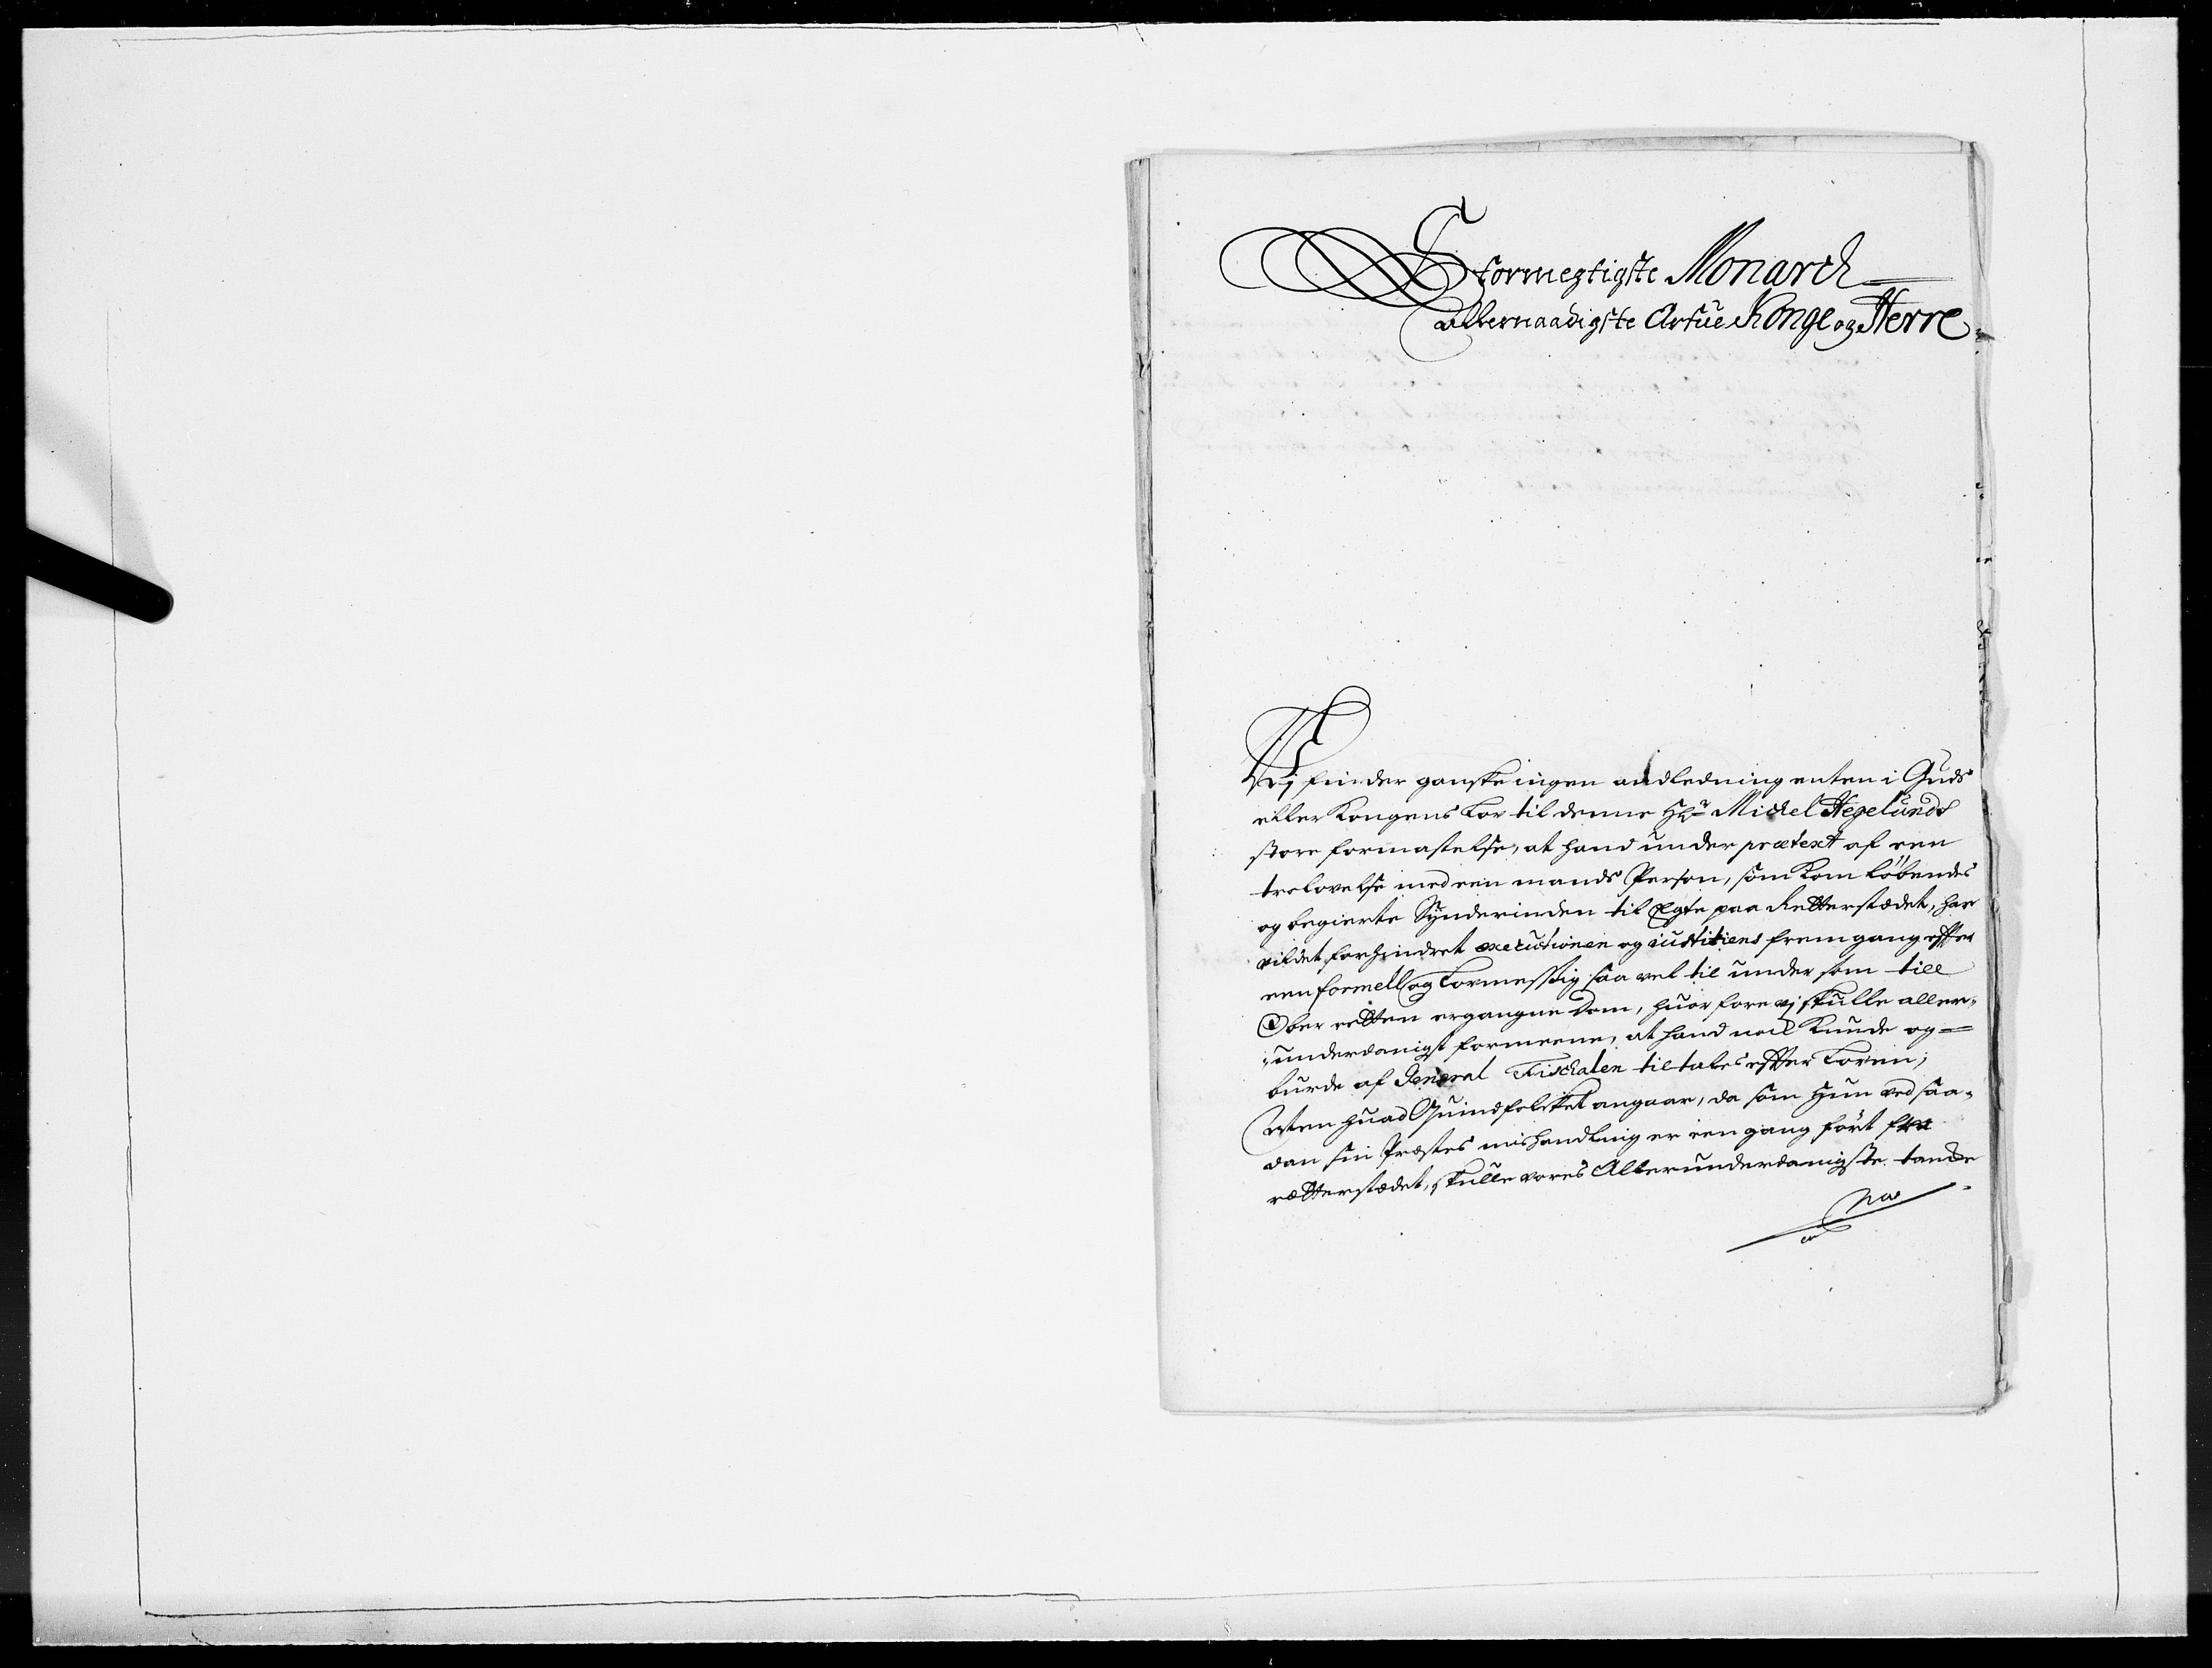 Stormegtigste Monarch
Allernaadigste Arfue Konge og Herre
Vj finder ganske ingen andledning enten i Guds
eller Kongens Lov til denne Hr Michel Hegelunds
store formastelse, at hand under prætext af een
trolovelse med een mands Person, som kom løbendes
og begierte Synderinden til Egte paa Retterstædet, har
vildet forhindret executionen og iustitiens fremgang effter
een formell og Lovmessig saa vel til under som till
Ober retten ergangne dom, huor fore vj skulle aller-
underdanigst formeene, at hand vel kunde og
burde af General Fischalen tiltales effter Loven;
Men huad Quindfolcket angaar, da som hun ved saa-
dan sin Præstes mishandling er een gang ført fra
rætterstædet, skulle vores Allerunderdanigste tancke